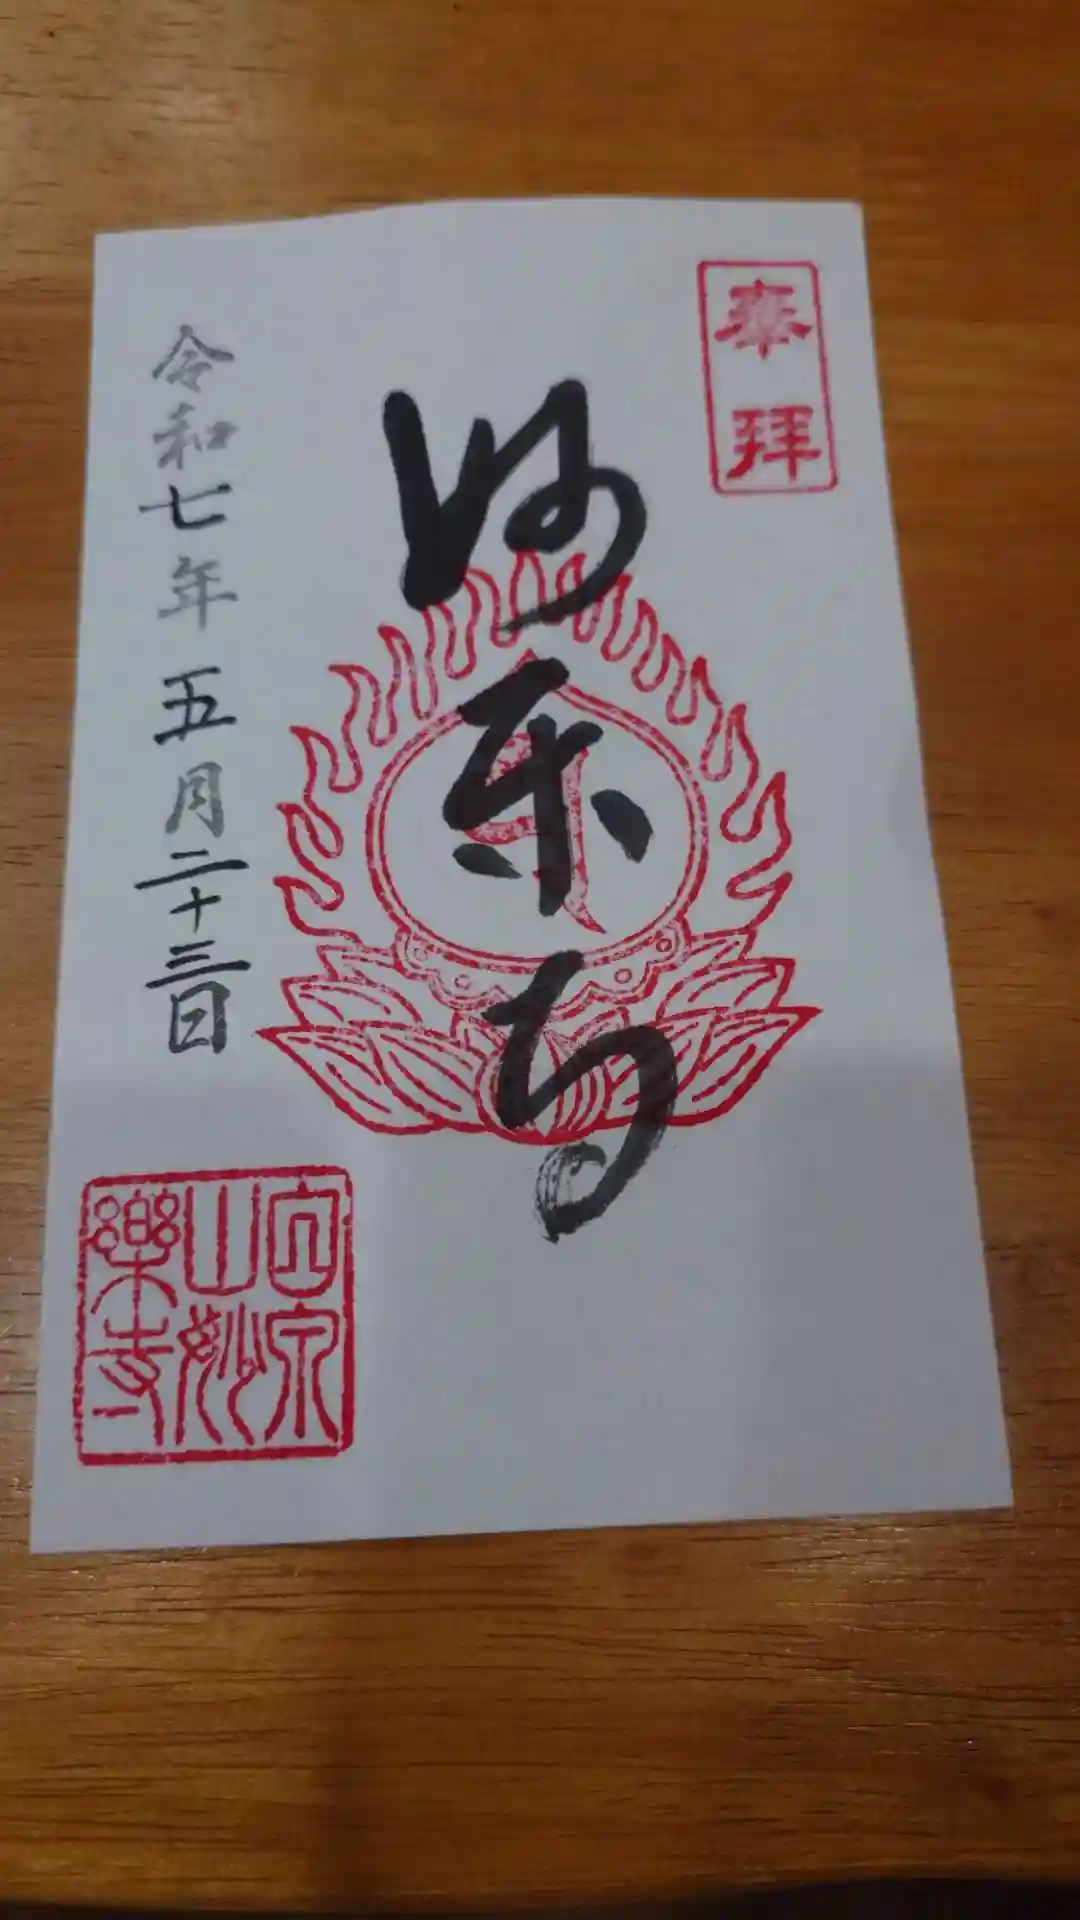 奉拝
妙楽寺
令和七年五月二十三日
山妙
樂寺